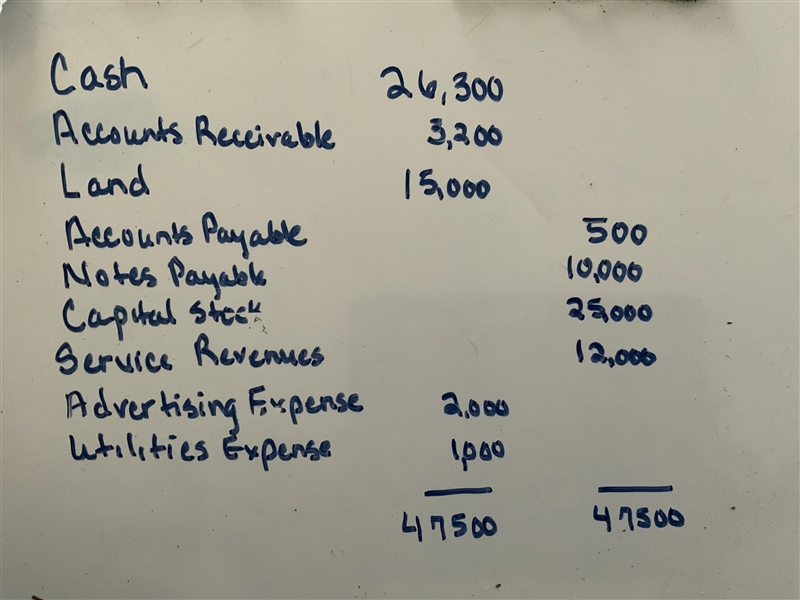 Cash 26,300
Accounts Receivable 3,200
Land 15,000
Accounts Payable 500
Notes Payable 10,000
Capital Stock 25,000
Service Revenues 12,000
Advertising Expense 2,000
Utilities Expense 1,000
47500 47500